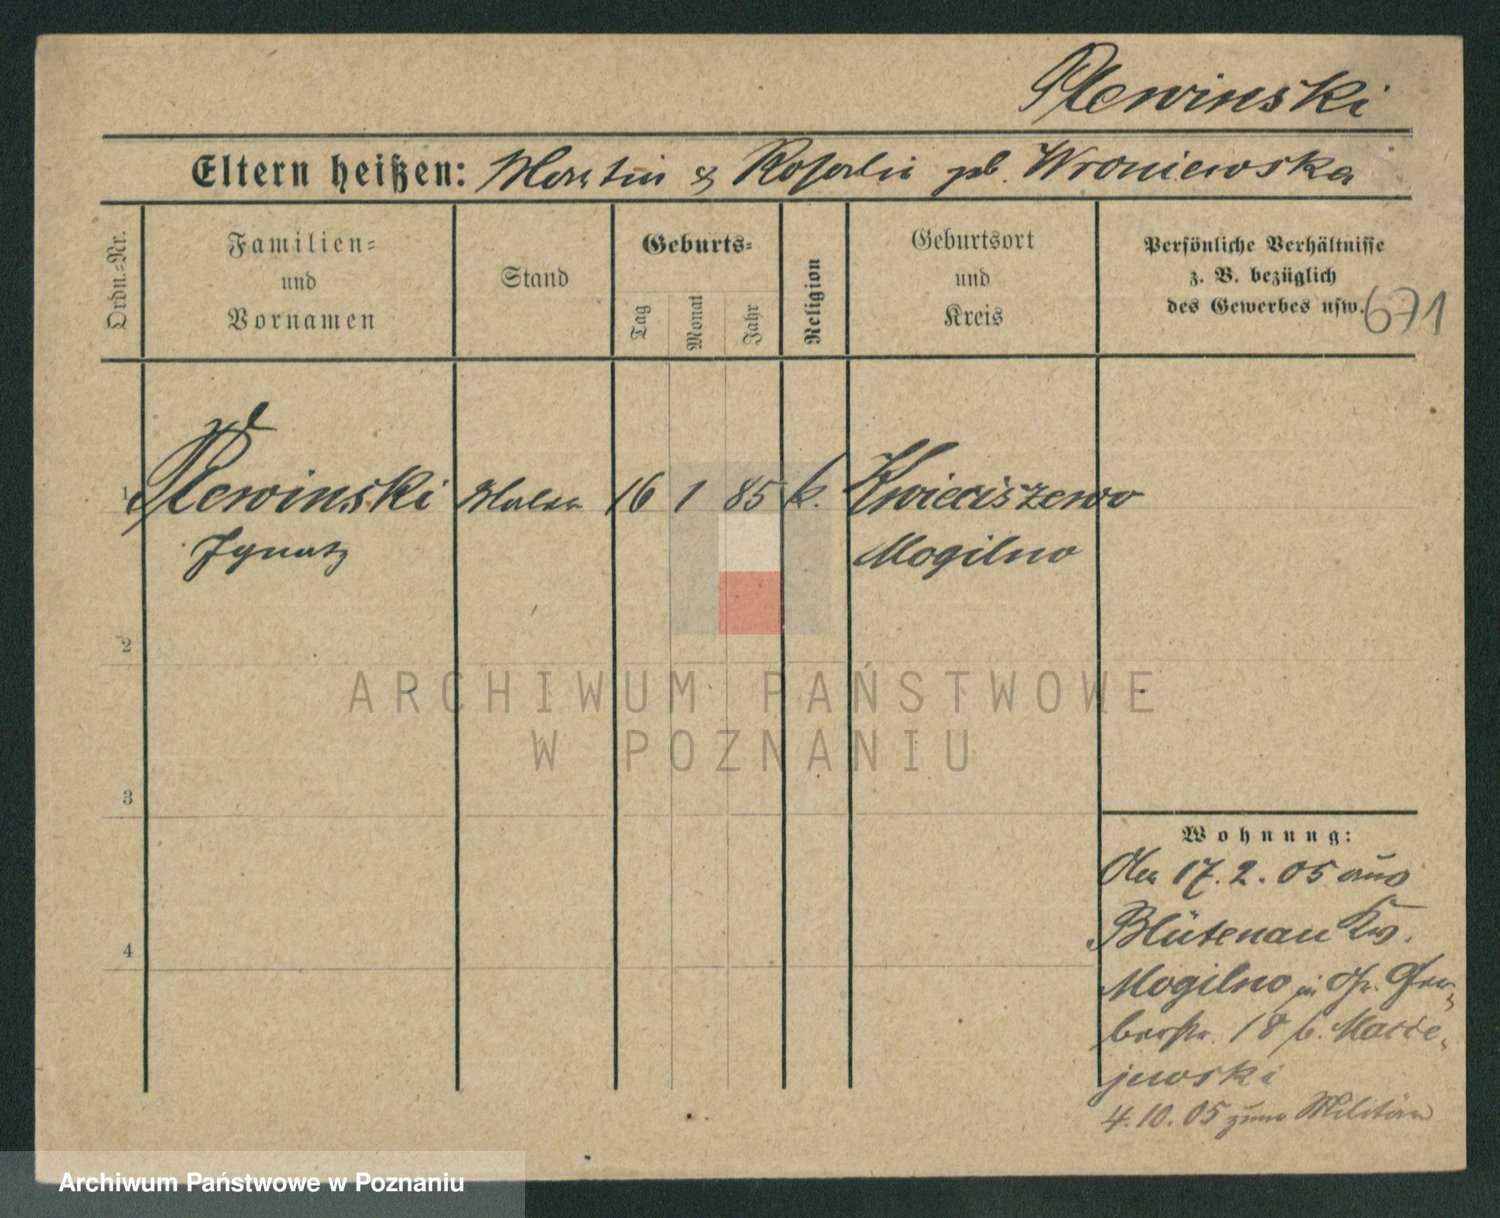 Plewinski
Eltern heißen: Martin & Rosalie geb. Wroniewska
Ordn.-Nr.
Familien-
und
Vornamen
Stand
Geburts-
Tag
Monat
Jahr
Religion
Geburtsort
und
Kreis
Persönliche Verhältnisse
z. B. bezüglich
des Gewerbes usw.
671
1 Plewinski Maler 16 1 85 k. Kwieciszewo
Ignatz Mogilno
2
3
4
ARCHIWUM PAŃSTWOWE
W POZNANIU
Wohnung:
17.2.05 aus
Blütenau Kr.
Mogilno in
18 b. Macie-
jewski
4.10.05 zum Militär
Archiwum Państwowe w Poznaniu